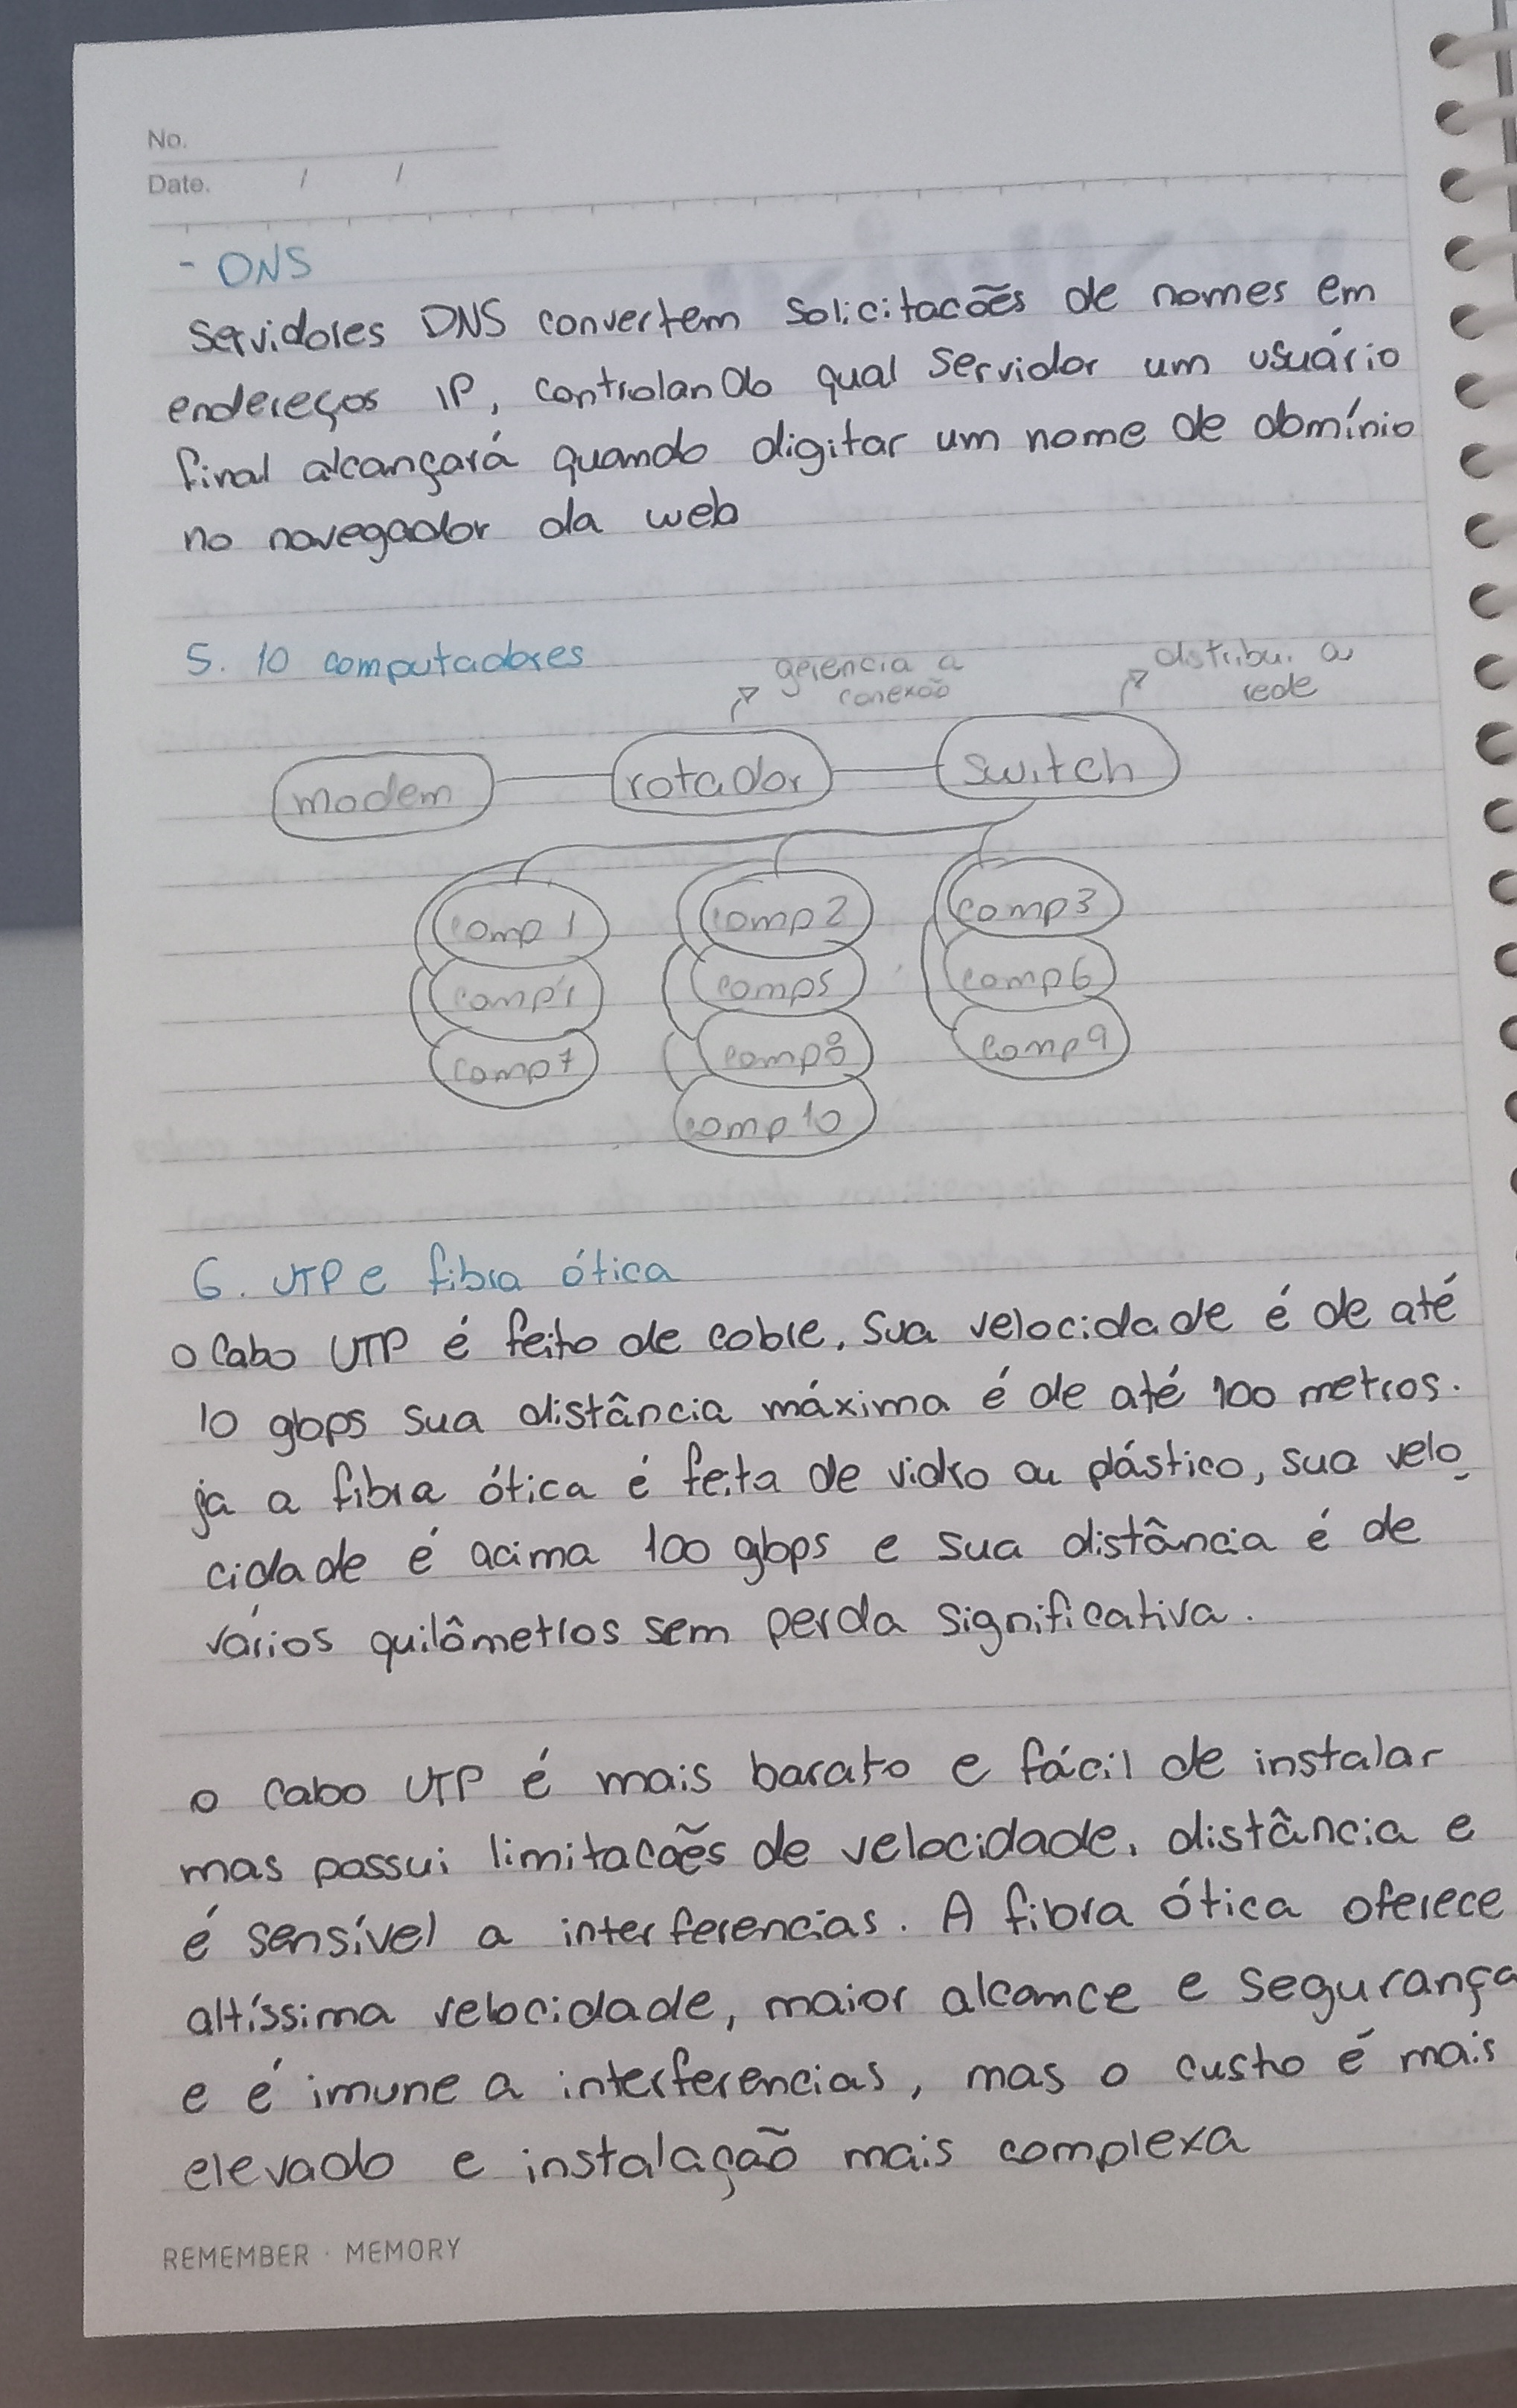 No.
Date. / /
- DNS
Servidores DNS convertem solicitacões de nomes em
endereços IP, controlando qual servidor um usuário
final alcançará quando digitar um nome de domínio
no navegador da web
5. 10 computadores
gerencia a
conexão
distribui a
rede
modem
rotador
switch
comp 1
comp 2
comp 3
comp 5
comp 6
comp 7
comp 8
comp 9
comp 10
6. UTP e fibra ótica
o Cabo UTP é feito de cobre. Sua velocidade é de até
10 gbps sua distância máxima é de até 100 metros.
ja a fibra ótica é feita de vidro ou plástico, sua velo
cidade é acima 100 gbps e sua distância é de
vários quilômetros sem perda significativa.
o cabo UTP é mais barato e fácil de instalar
mas possui limitacões de velocidade, distância e
é sensível a interferencias. A fibra ótica oferece
altíssima velocidade, maior alcance e segurança
e é imune a interferencias, mas o custo é mais
elevado e instalação mais complexa
REMEMBER · MEMORY